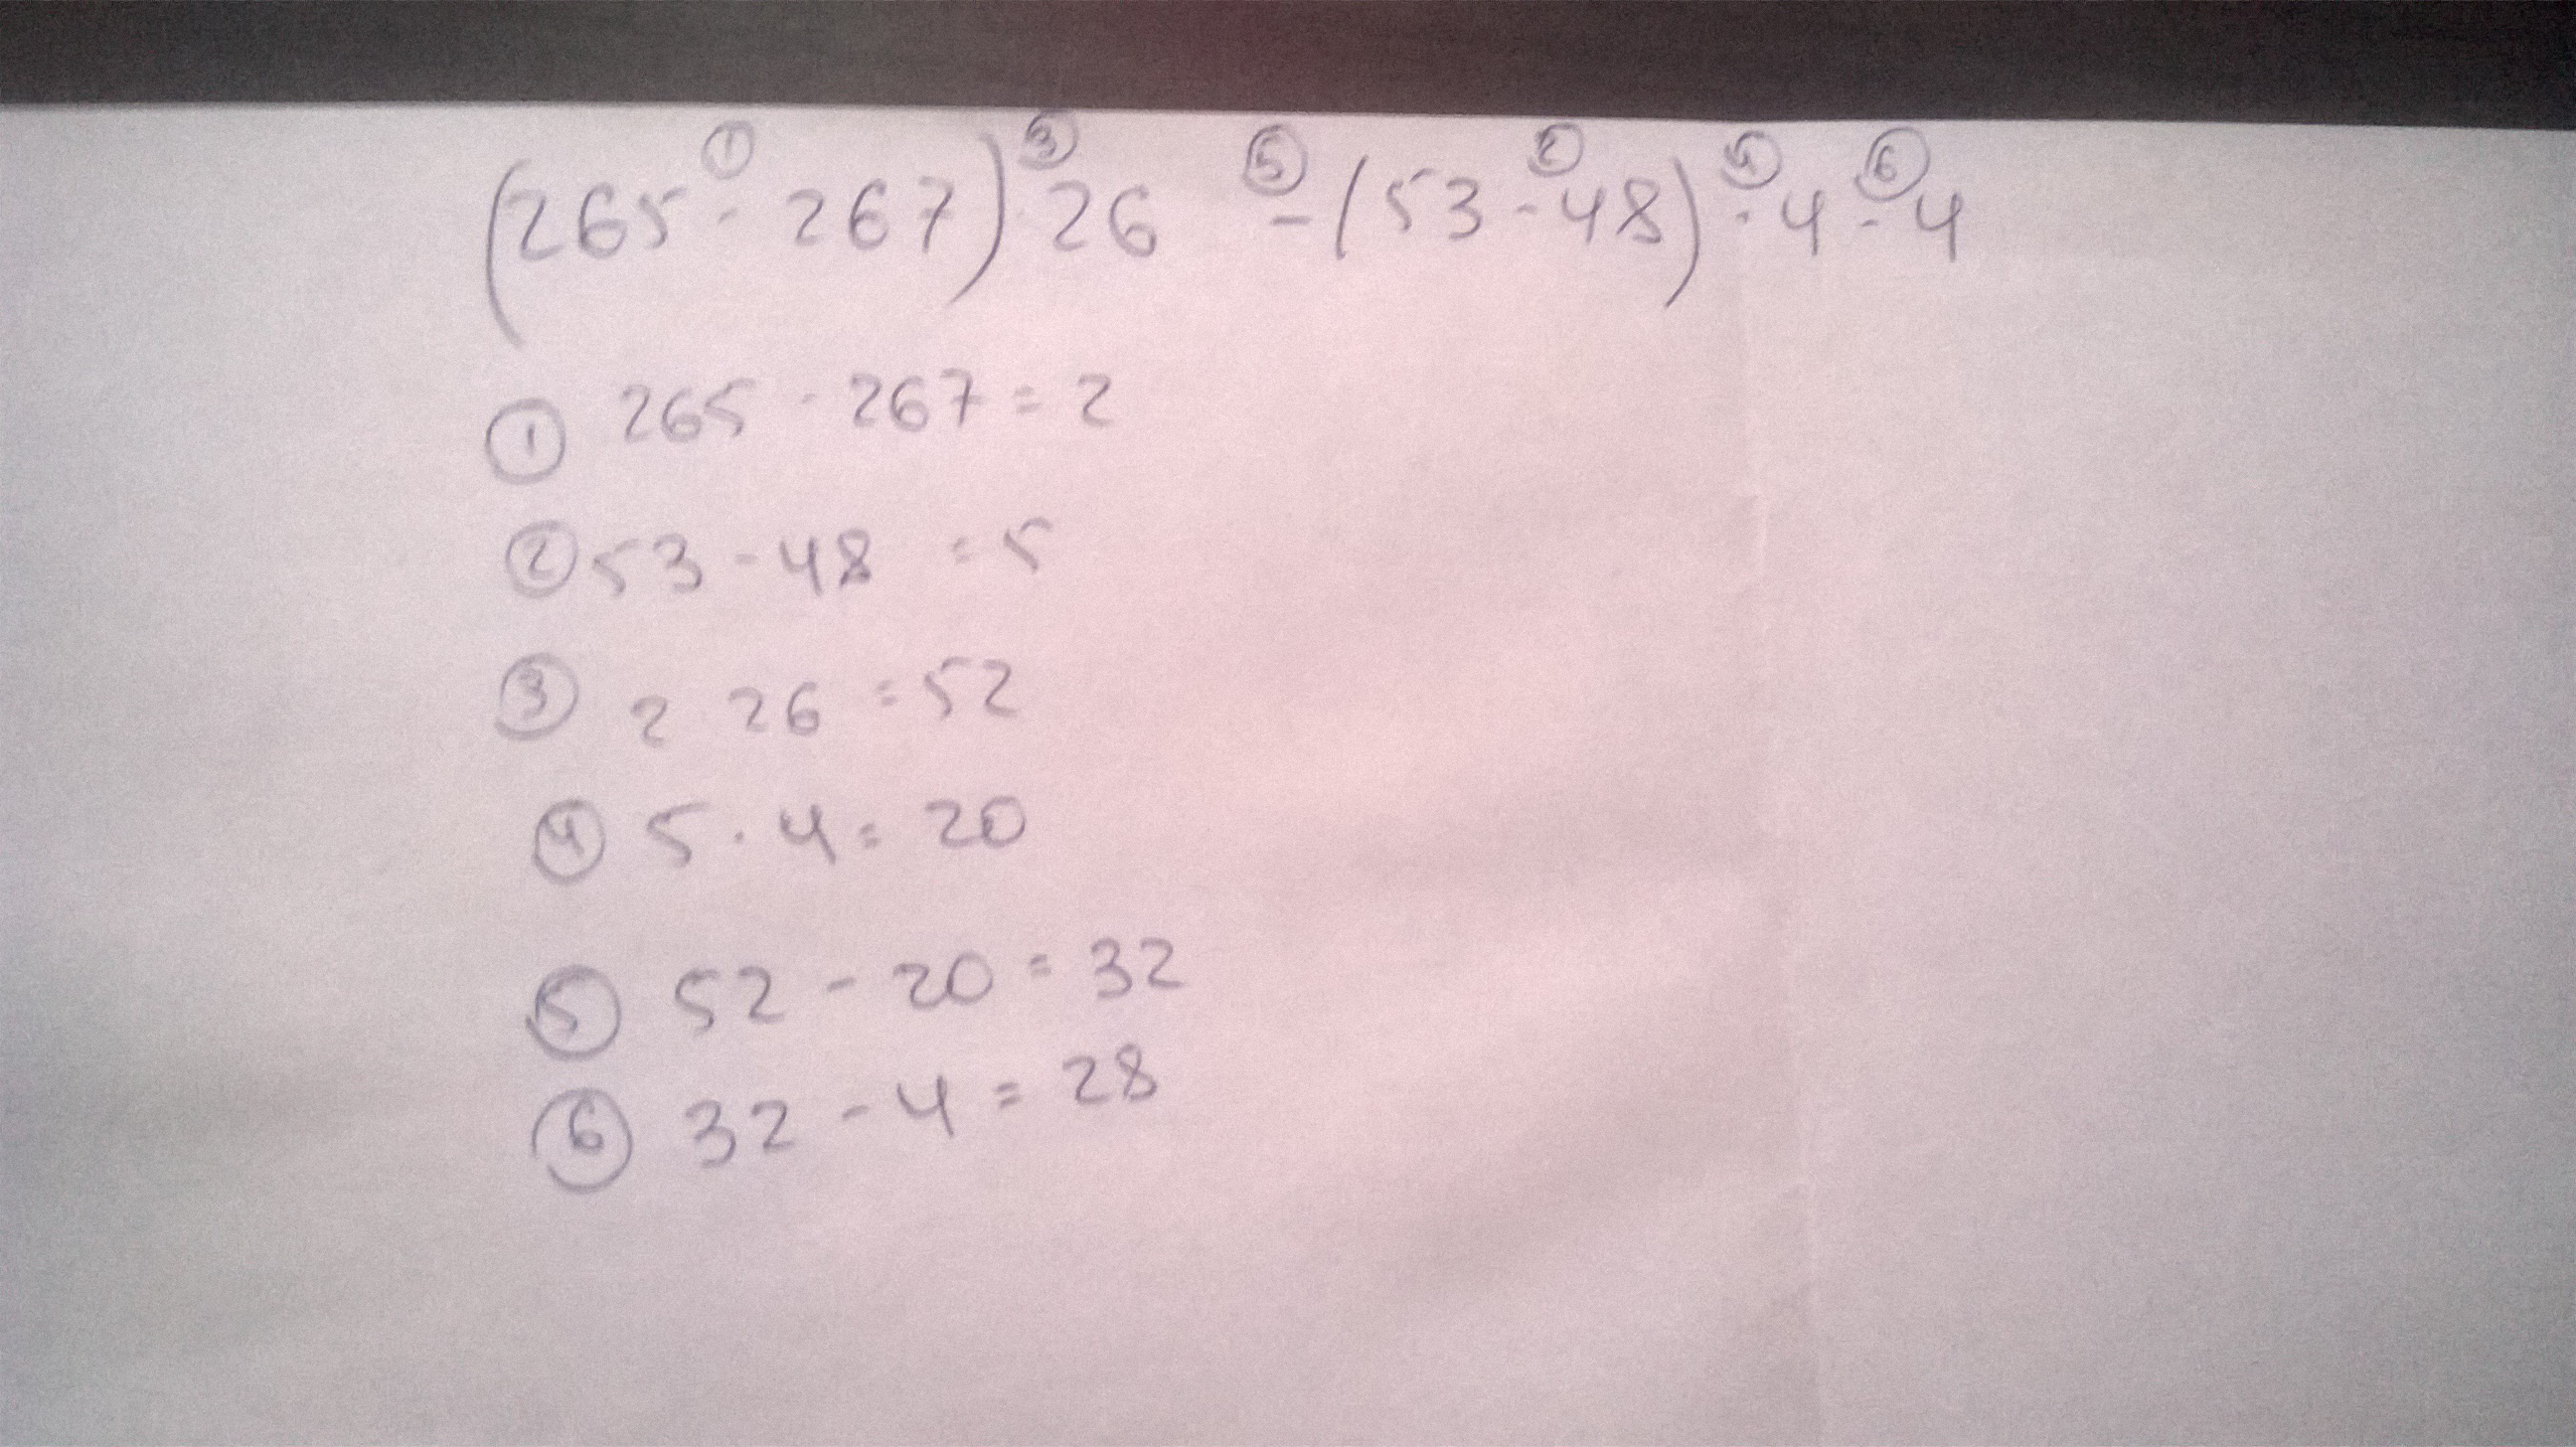 ① ③ ⑤ ② ④ ⑥
(265 - 267) · 26 - (53 - 48) · 4 - 4
① 265 - 267 = 2
② 53 - 48 = 5
③ 2 26 = 52
④ 5 · 4 = 20
⑤ 52 - 20 = 32
⑥ 32 - 4 = 28